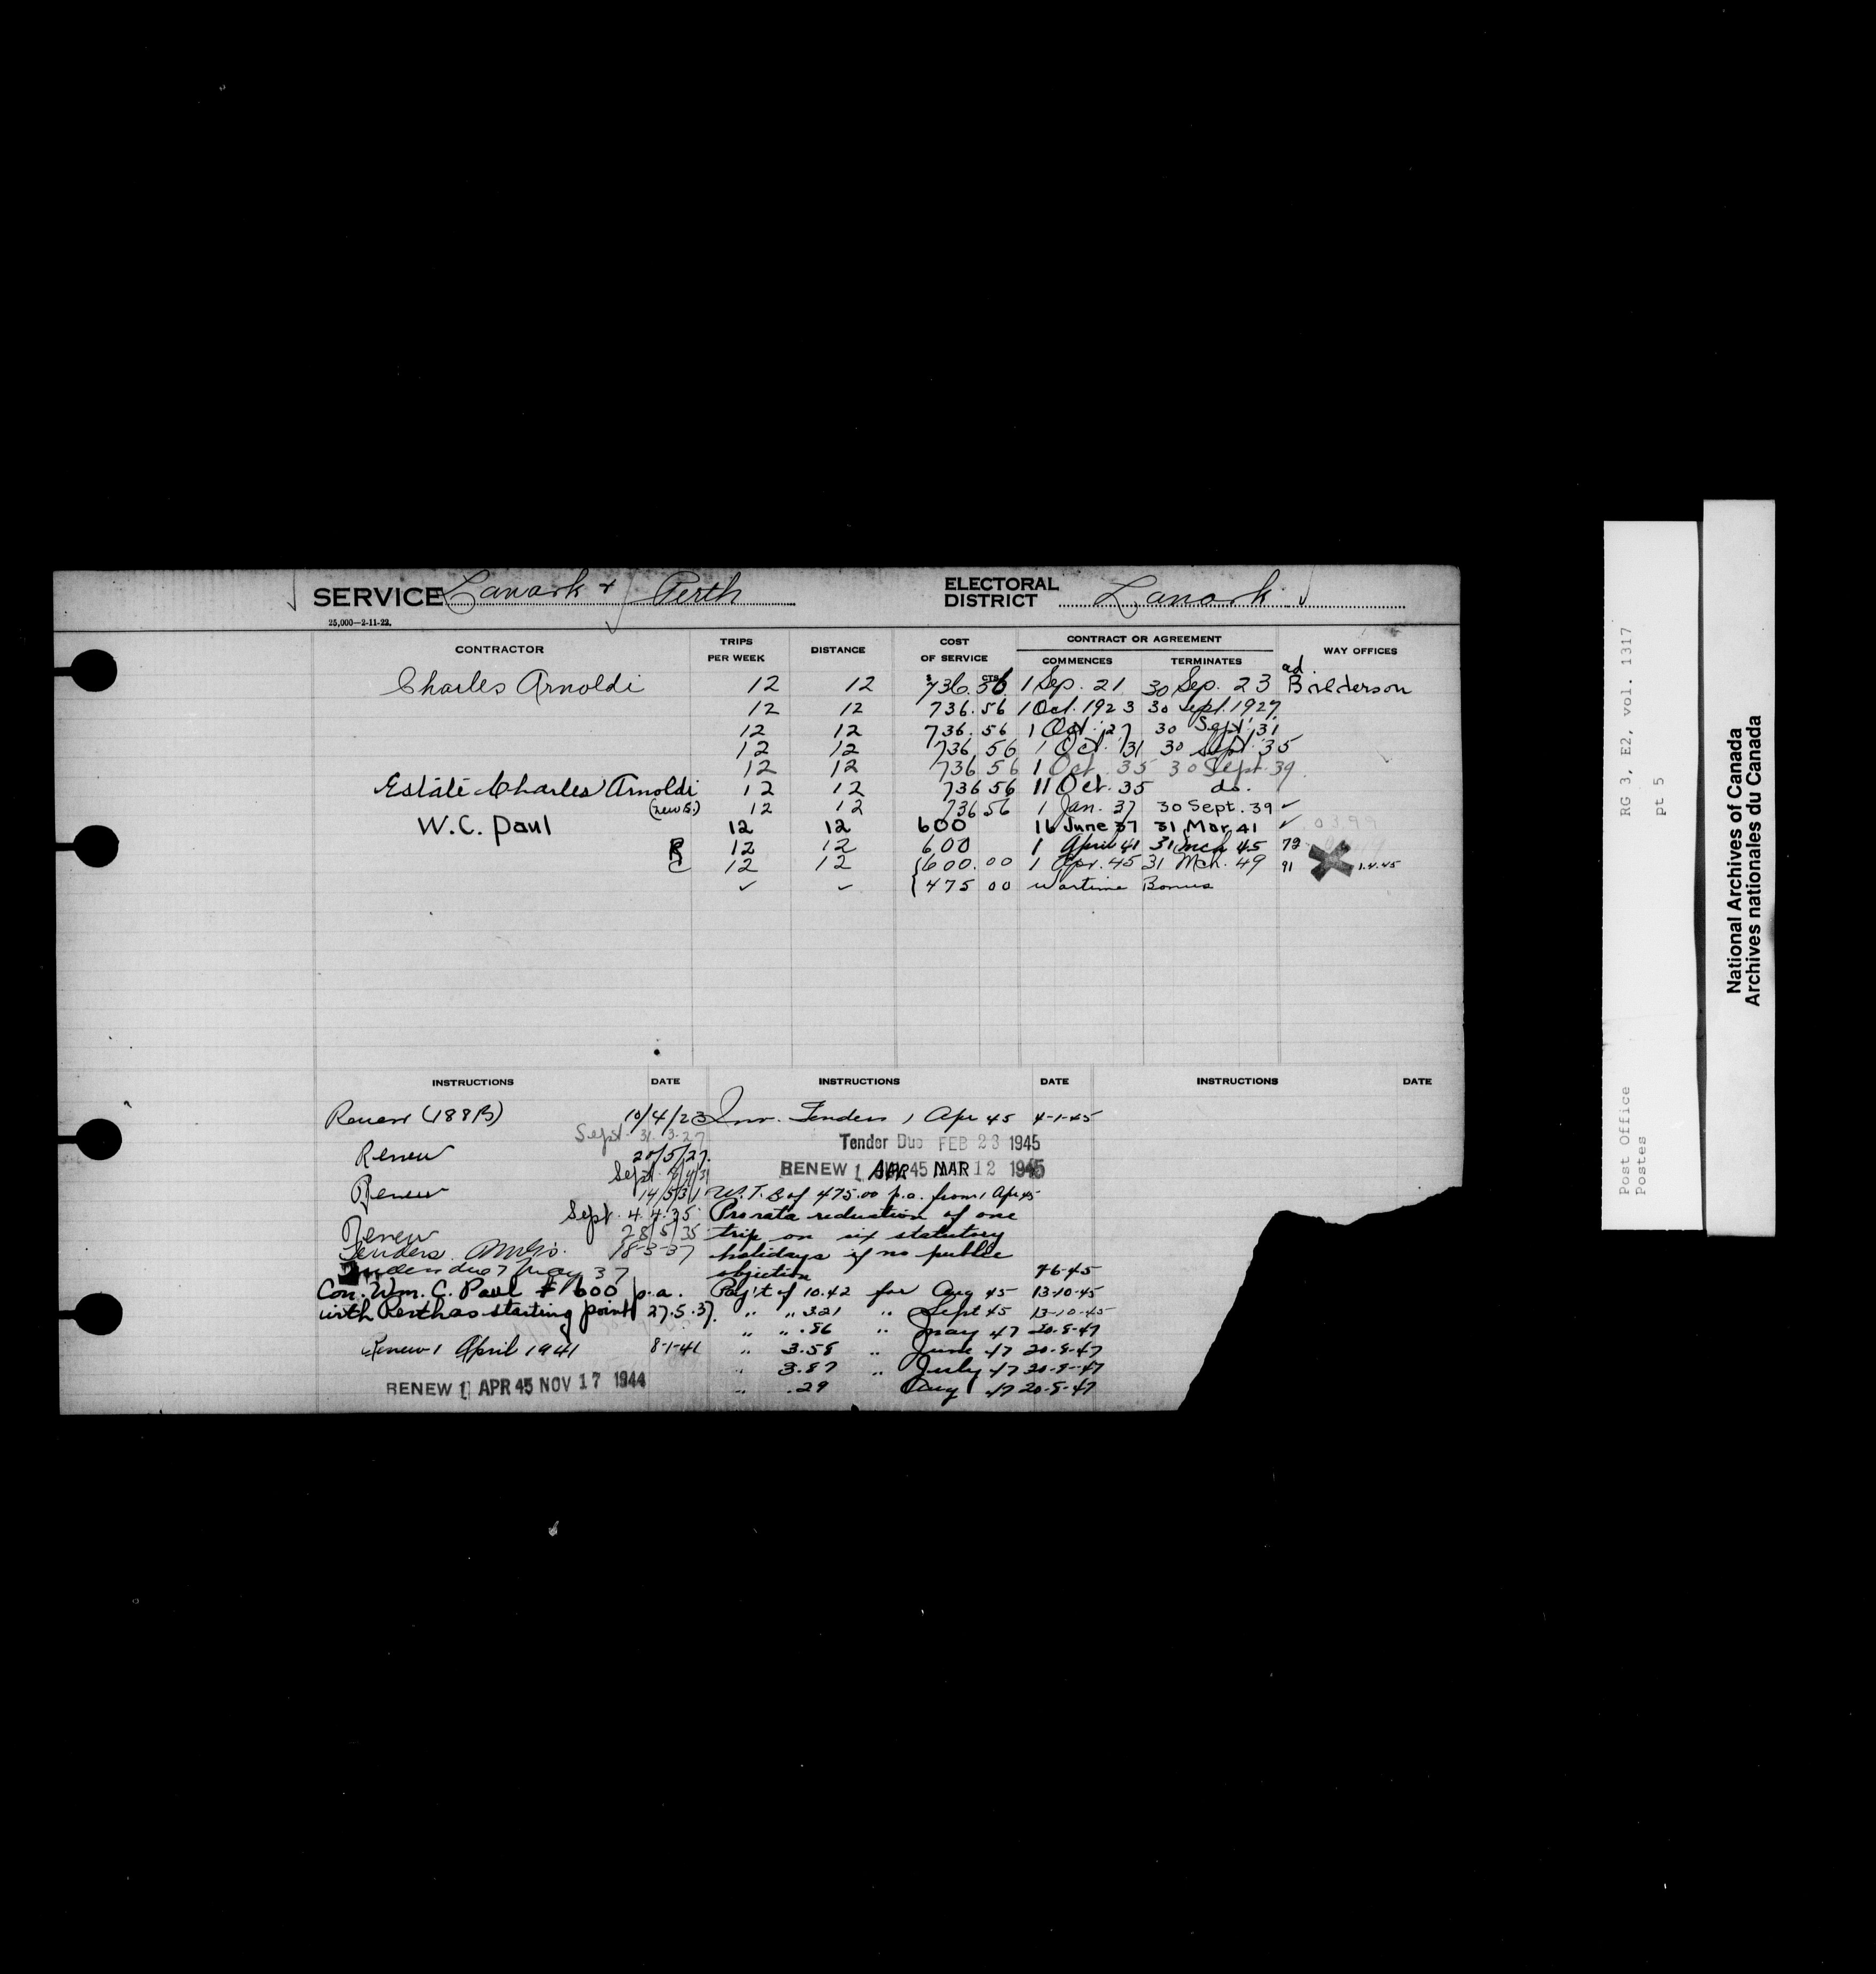 SERVICE Lanark & Perth ELECTORAL DISTRICT Lanark
25,000—2-11-22.
CONTRACTOR TRIPS PER WEEK DISTANCE COST OF SERVICE CONTRACT OR AGREEMENT COMMENCES TERMINATES WAY OFFICES
ad
Charles Arnoldi 12 12 $736.56 1 Sep. 21 30 Sep. 23 Balderson
12 12 736.56 1 Oct. 1923 30 Sept. 1927
12 12 736.56 1 Oct. 27 30 Sept. 31
12 12 736 56 1 Oct. 31 30 Sept. 35
12 12 736 56 1 Oct. 35 30 Sept. 39
Estate Charles Arnoldi 12 12 736 56 11 Oct. 35 do.
(new G.) 12 12 736 56 1 Jan. 37 30 Sept. 39 ✓
W.C. Paul 12 12 600 16 June 37 31 Mar. 41 ✓ 0399
R 12 12 600 1 April 41 31 Mch 45 79
C 12 12 {600.00 1 Apr. 45 31 Mch. 49 91 1.4.45
✓ ✓ {475 00 Wartime Bonus
INSTRUCTIONS DATE INSTRUCTIONS DATE INSTRUCTIONS DATE
Renew (188B) 10/4/23
Sept. 31.3.27
Renew 20/5/27.
Sept.
Renew 14/5/31
Sept. 4.4.35
Renew 28/5/35
Tenders 18-3-37
due 7 May 37
Con. Wm. C. Paul $600 p.a.
with Perth as starting point 27.5.37.
Renew 1 April 1941 8-1-41
RENEW 1 APR 45 NOV 17 1944
Inv. Tenders 1 Apr 45 4-1-45
Tender Due FEB 23 1945
RENEW 1 APR 45 MAR 12 1945
W.T.B of 475.00 p.a. from 1 Apr 45
Pro rata reduction of one
trip on six statutory
holidays if no public
objection 7-6-45
Pay't of 10.42 for Aug 45 13-10-45
" " 3.21 " Sept 45 13-10-45
" " .86 " May 47 20-8-47
" 3.58 " June 47 20-8-47
" 3.87 " July 47 20-8-47
" .29 Aug 47 20-8-47
RG 3, E2, vol. 1317
pt 5
Post Office
Postes
National Archives of Canada
Archives nationales du Canada